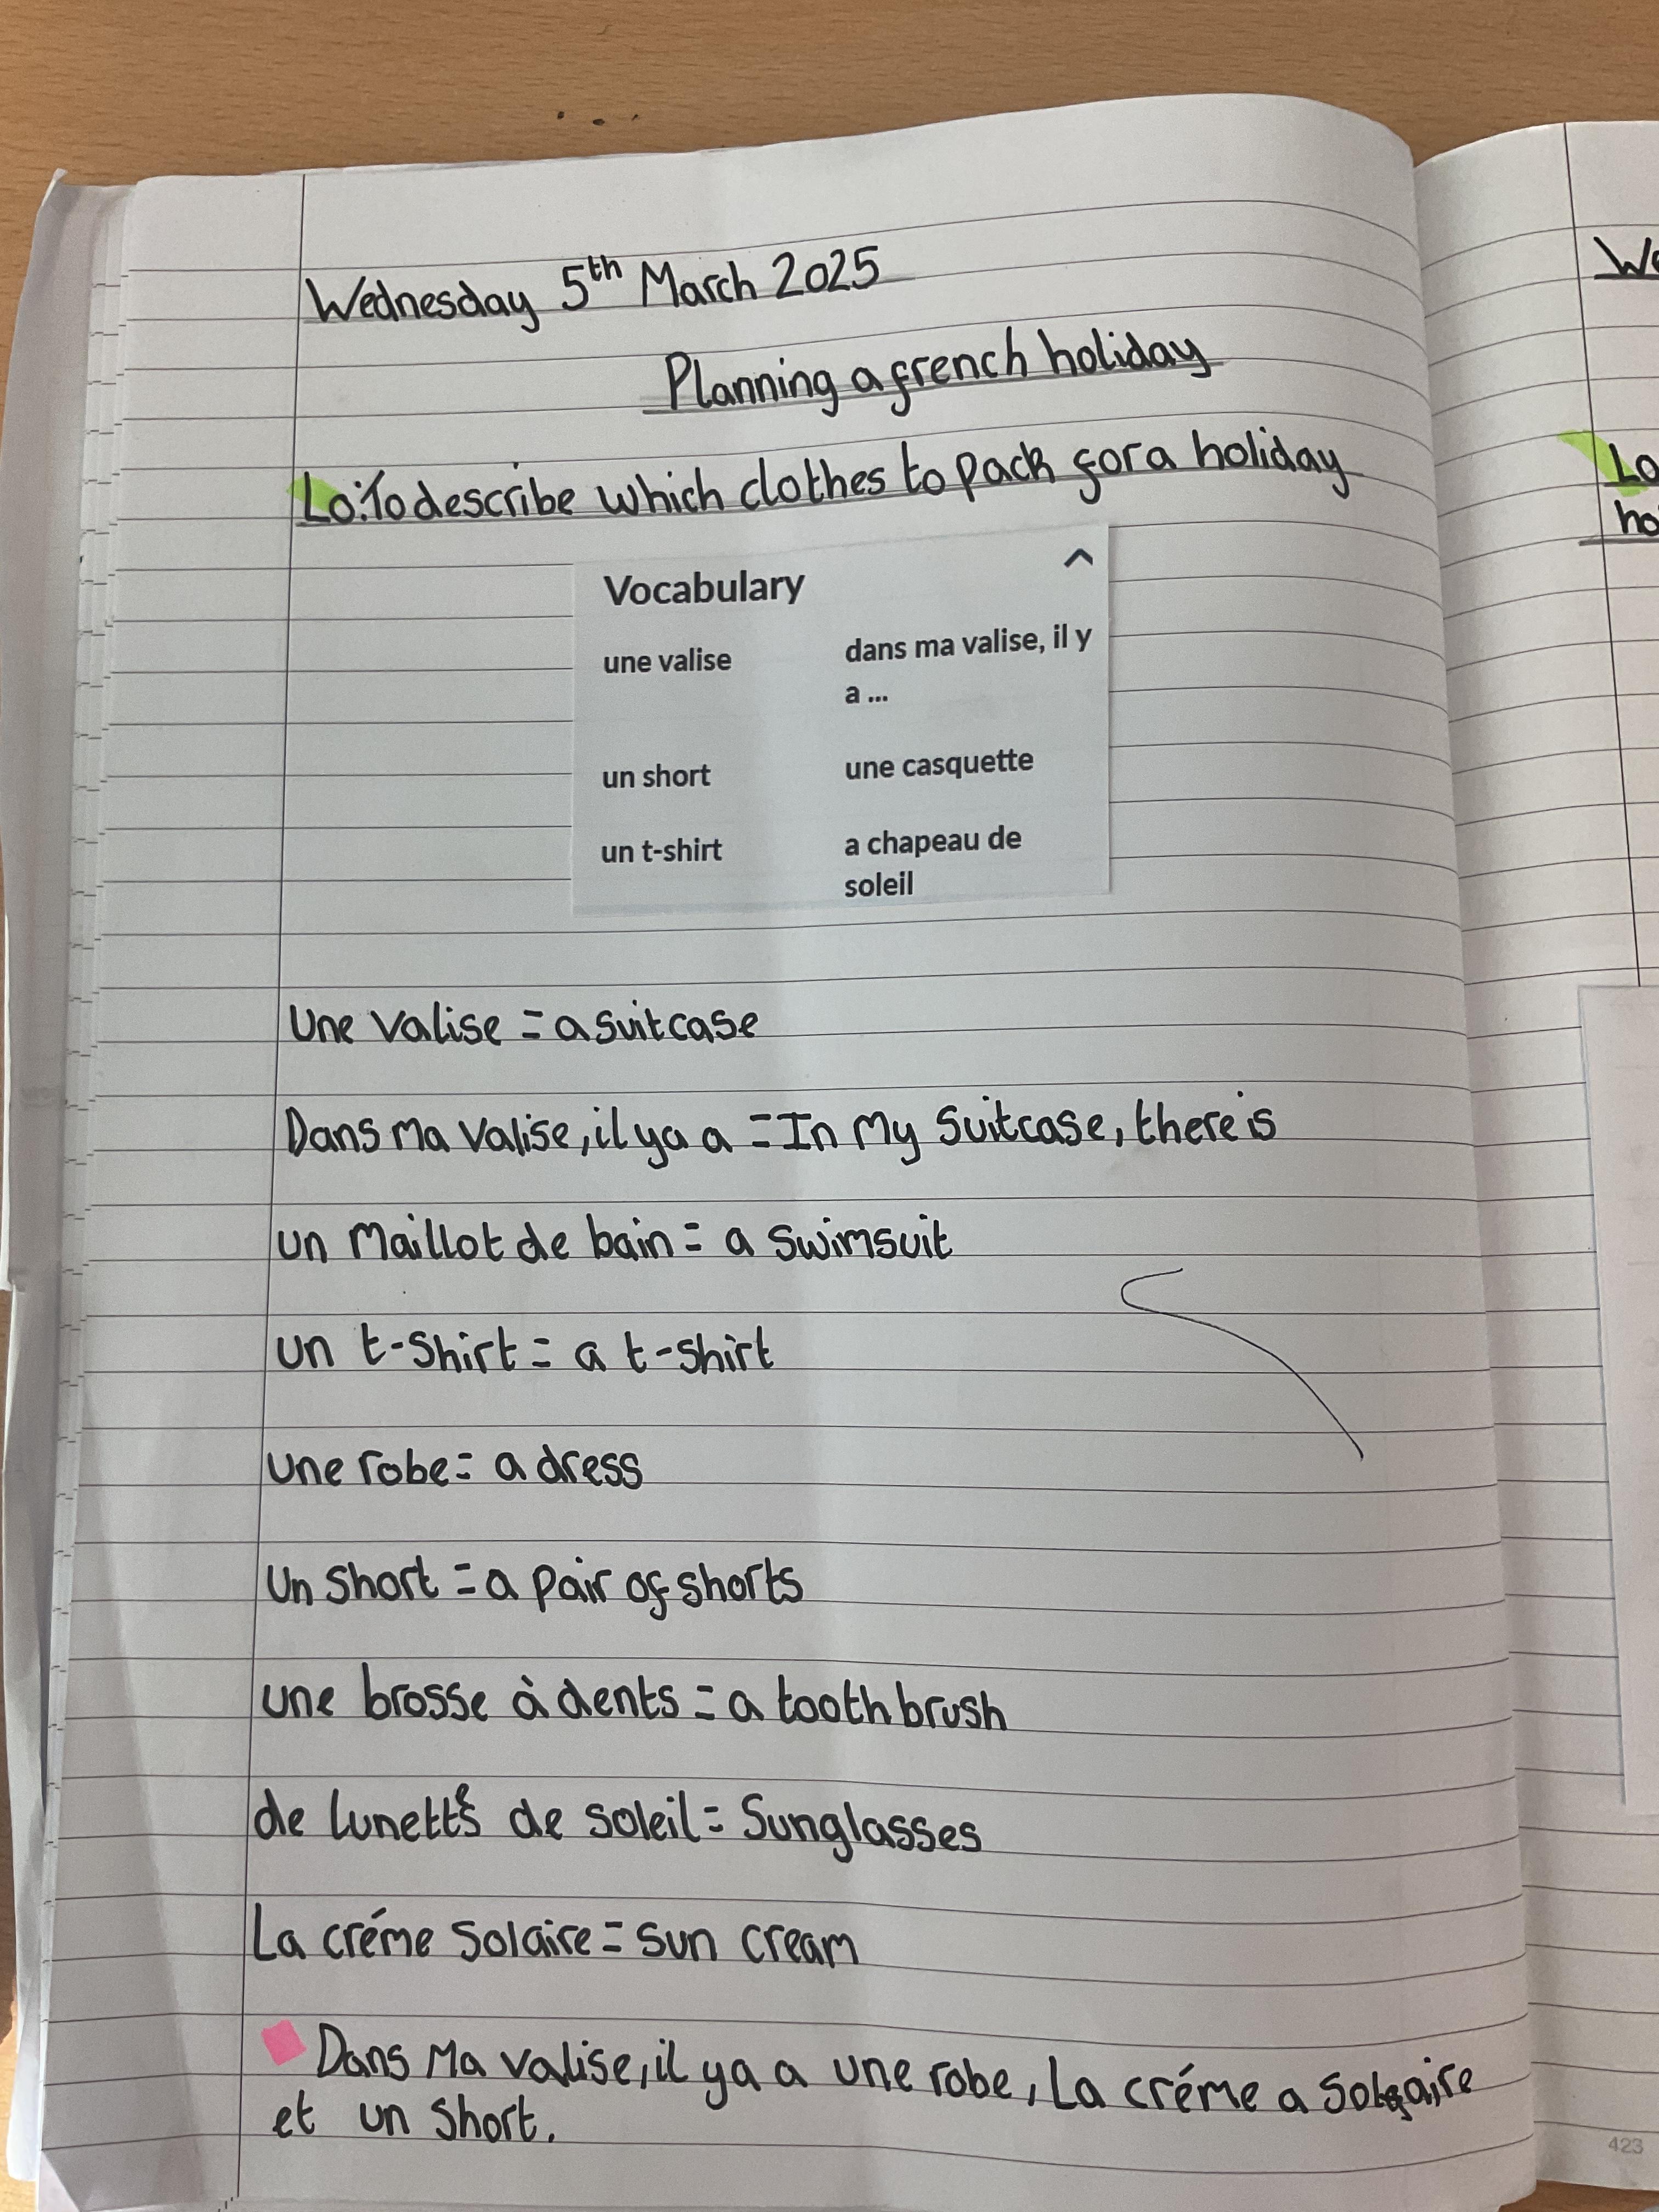 Wednesday 5th March 2025
Planning a french holiday
Lo: To describe which clothes to pack for a holiday
Vocabulary
une valise
dans ma valise, il y
a ...
un short
une casquette
un t-shirt
a chapeau de
soleil
Une valise = a suitcase
Dans ma valise, il ya a = In my suitcase, there is
un maillot de bain = a swimsuit
un t-shirt = a t-shirt
une robe = a dress
Un short = a pair of shorts
une brosse à dents = a tooth brush
de lunettes de soleil = Sunglasses
La créme solaire = sun cream
Dans ma valise, il ya a une robe, La créme a solaire
et un short.
Lo
ho
423